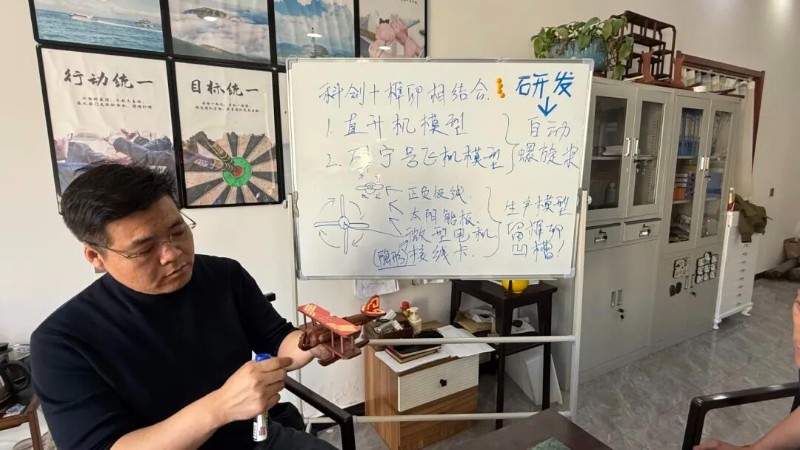 行动统一
目标统一
科创+榫卯相结合 研发
1.直升机模型
2.列宁号飞机模型
自动
螺旋桨
正负极线
太阳能板
微型电机
(隐形)接线卡
生产模型
留榫卯
凹槽!